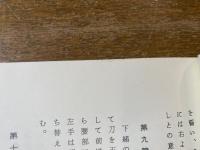 を誓い、
には右よ
しとの意
第九
下緒の
て刀を
して前
ら腰部
左手は
ち替え
む。
第十